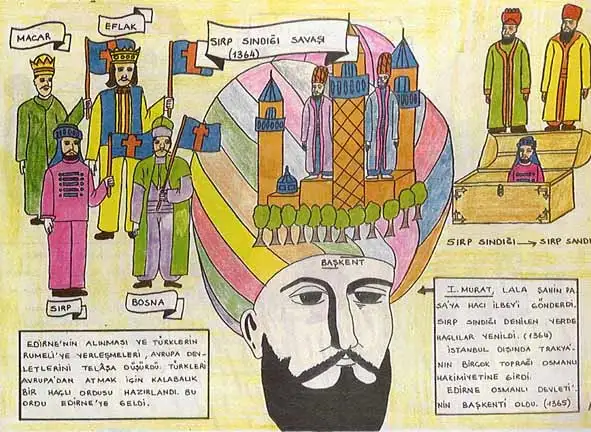 MACAR
EFLAK
SIRP SINDIĞI SAVAŞI
(1364)
SIRP
BOSNA
BAŞKENT
SIRP SINDIĞI → SIRP SANDI
EDİRNE'NİN ALINMASI VE TÜRKLERİN
RUMELİ'YE YERLEŞMELERİ, AVRUPA DEV-
LETLERİNİ TELÂŞA DÜŞÜRDÜ. TÜRKLERİ
AVRUPA'DAN ATMAK İÇİN KALABALIK
BİR HAÇLI ORDUSU HAZIRLANDI. BU
ORDU EDİRNE'YE GELDİ.
I. MURAT, LALA ŞAHİN PA
ŞA'YA HACI İLBEY'İ GÖNDERDİ.
SIRP SINDIĞI DENİLEN YERDE
HAÇLILAR YENİLDİ. (1364)
İSTANBUL DIŞINDA TRAKYA'-
NIN BİRÇOK TOPRAĞI OSMANLI
HAKİMİYETİNE GİRDİ.
EDİRNE OSMANLI DEVLETİ'-
NİN BAŞKENTİ OLDU. (1365)